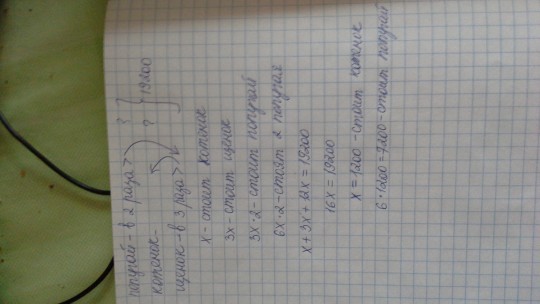 попугай - в 2 раза > ?
котенок - ? } 19200
щенок - в 3 раза >
x - стоит котенок
3x - стоит щенок
3x·2 - стоит попугай
6x·2 - стоит 2 попугая
x + 3x + 12x = 19200
16x = 19200
x = 1200 - стоит котенок
6·1200 = 7200 - стоит попугай